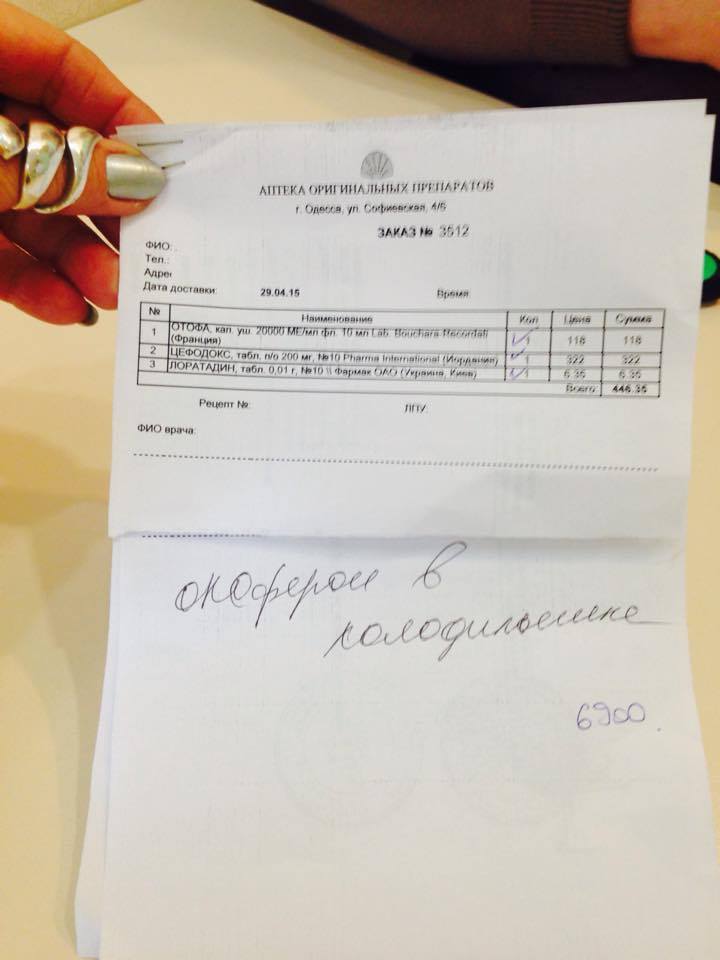 АПТЕКА ОРИГИНАЛЬНЫХ ПРЕПАРАТОВ
г. Одесса, ул. Софиевская, 4/6
ЗАКАЗ № 3512
ФИО:
Тел.:
Адрес
Дата доставки: 29.04.15 Время:
№ Наименование Кол Цена Сумма
1 ОТОФА, кап. уш. 20000 МЕ/мл фл. 10 мл Lab. Bouchara-Recordati (Франция) 1 118 118
2 ЦЕФОДОКС, табл. п/о 200 мг, №10 Pharma International (Иордания) 1 322 322
3 ЛОРАТАДИН, табл. 0,01 г, №10 \\ Фармак ОАО (Украина, Киев) 1 6.35 6.35
Всего: 446.35
Рецепт №: ЛПУ:
ФИО врача:
в
холодильнике
6900